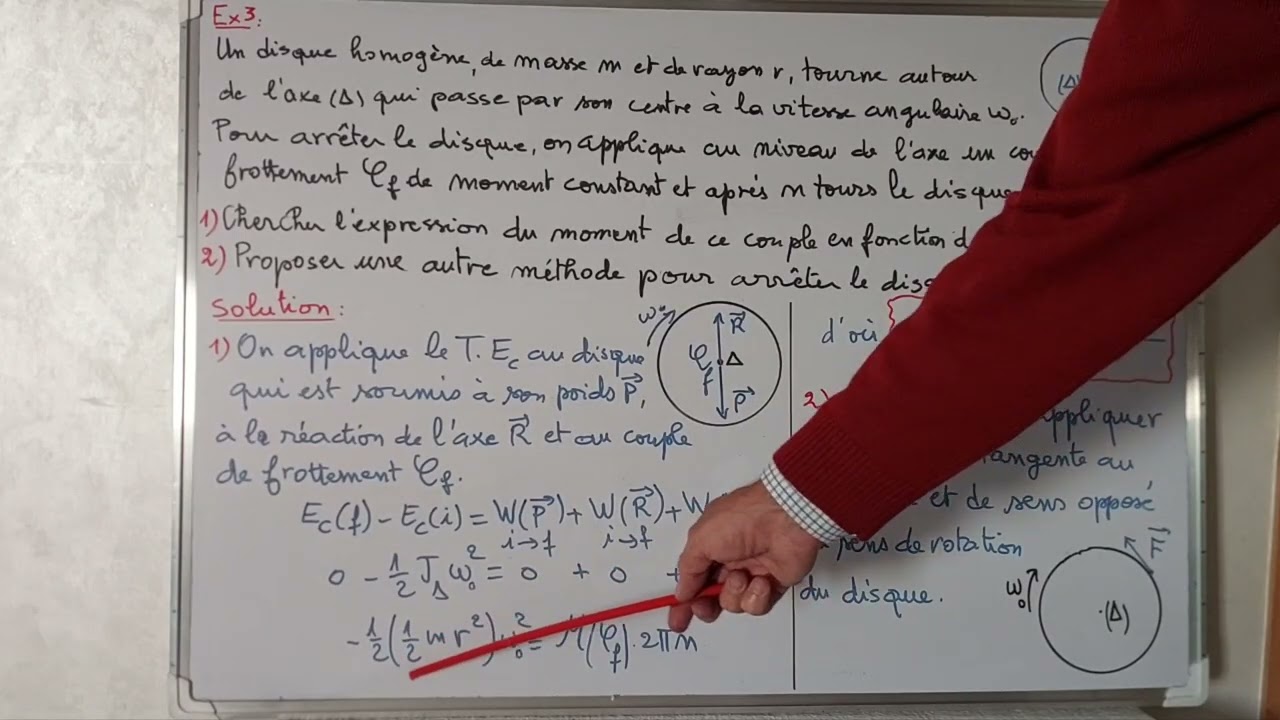 Ex3:
Un disque homogène, de masse m et de rayon r, tourne autour
de l'axe (Δ) qui passe par son centre à la vitesse angulaire ω₀.
Pour arrêter le disque, on applique au niveau de l'axe un
frottement 𝒞f de moment constant et après n tours le disque
1) Chercher l'expression du moment de ce couple en fonction
2) Proposer une autre méthode pour arrêter le
(Δ)
Solution:
1) On applique le T.Ec au disque
qui est soumis à son poids P⃗,
à la réaction de l'axe R⃗ et au couple
de frottement 𝒞f.
ω₀
R⃗
𝒞f
Δ
P⃗
Ec(f) - Ec(i) = W(P⃗) + W(R⃗) +
i→f i→f
0 - 1/2 JΔ ω₀² = 0 + 0 +
-1/2 (1/2 m r²) ω₀² = M(𝒞f). 2πn
d'où
2)
appliquer
tangente au
et de sens opposé
sens de rotation
du disque.
F⃗
ω₀
(Δ)